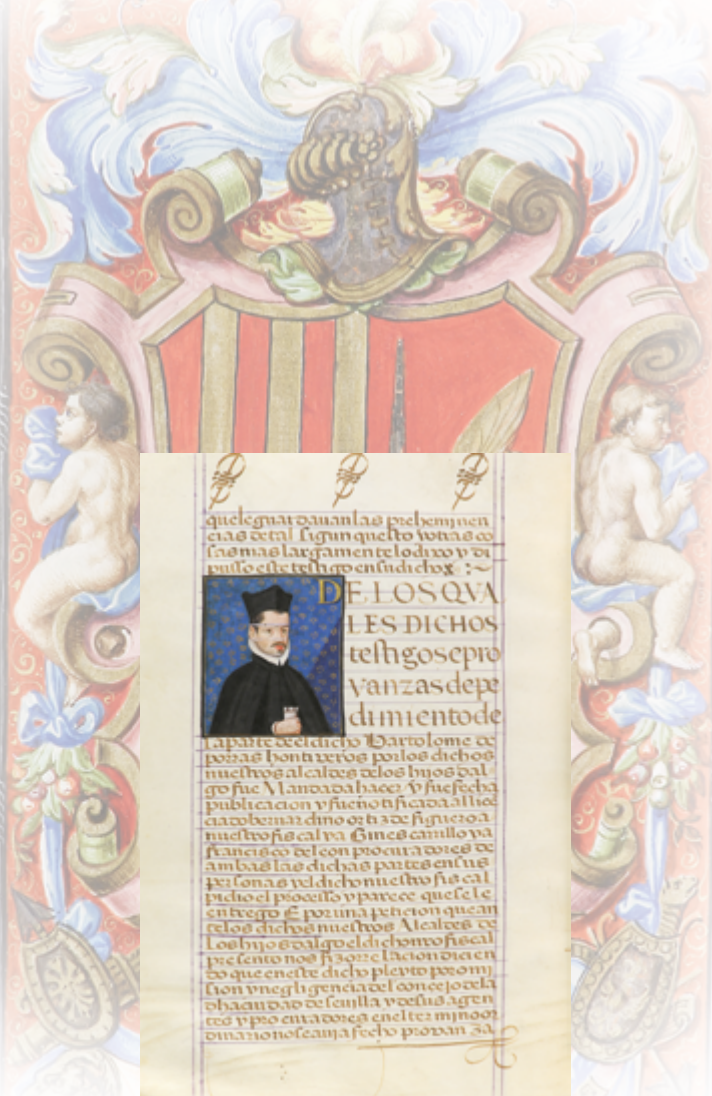 que le guardauan las preheminen
cias de tal sigun questo yotras co
sas mas largamente lo dixo y di
pusso este testigo en su dicho x :~
DE LOS QVA
LES DICHOS
testigos e pro
vanzas de pe
dimiento de
la parte de el dicho Bartolome de
porras hontiveros por los dichos
nuestros alcaldes de los hijos dal
go fue Mandada hacer y fue fecha
publicacion y fue notificada al lice
ciado bernardino ortiz de figueroa
nuestro fiscal ya Gines carrillo ya
francisco de leon procuradores de
ambas las dichas partes en sus
personas y el dicho nuestro fiscal
pidio el processo y parece que se le
entrego E por una peticion que an
te los dichos nuestros Alcaldes de
Los hijosdalgo el dicho nro fiscal
presento nos fizo rrelacion dicien
do que en este dicho pleyto por omi
sion y negligencia del concejo de la
dha ciudad de seuilla y de sus agen
tes y procuradores en el termino or
dinario no se auia fecho provanza